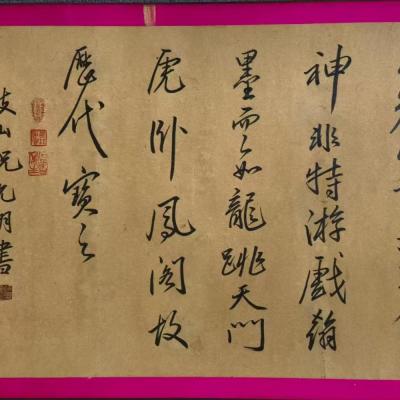 神非特游戲翰
墨而已如龍跳天門
虎卧鳳閣故
歷代寶之
枝山祝允明書